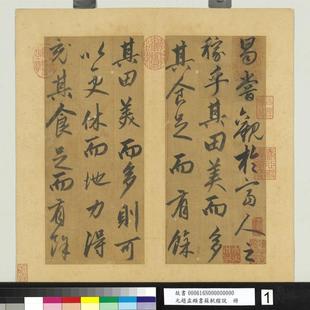 曷嘗觀於富人之
稼乎其田美而多
其食足而有餘
其田美而多則可
以更休而地力得
完其食足而有餘
故書 000616N000000000
元趙孟頫書蘇軾稼說 冊
1